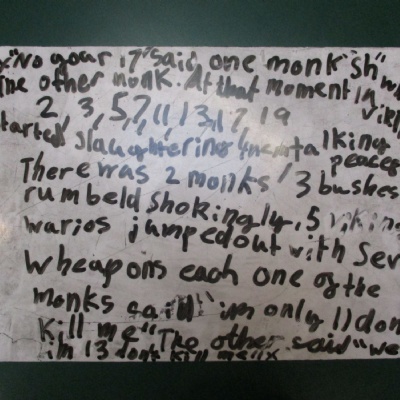 "No your 17" said one monk "sh"
the other monk. At that moment 19
2, 3, 5, 7, 11, 13, 17, 19
started slaughtering talking
peace
There was 2 monks 3 bushes
rumbeld shokingly, 5 viking
warios jumped out with Sev
wheapons each one of the
monks said "im only 11 don
kill me" The other said "we
im 13 dont kill me"